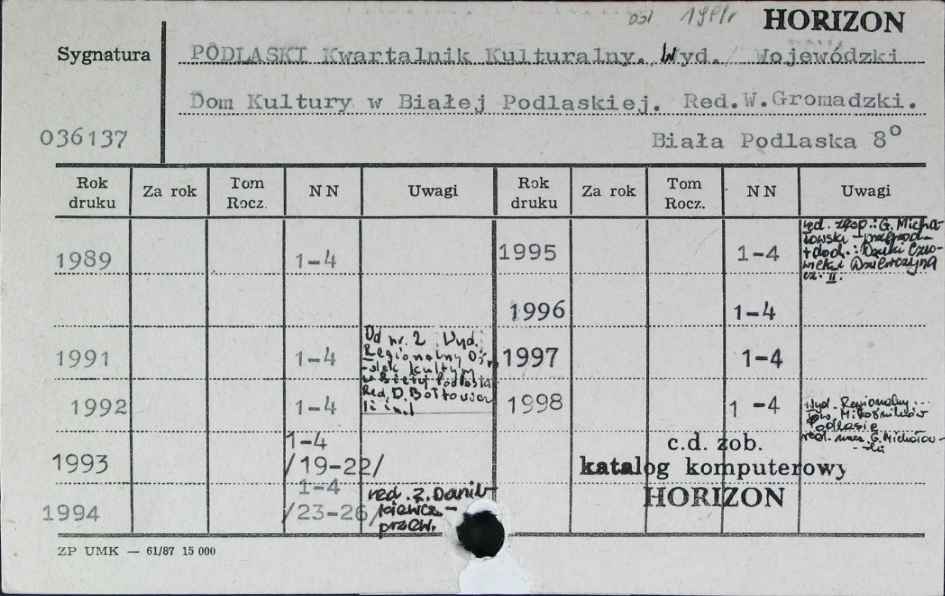 HORIZON
Sygnatura
PODLASKI Kwartalnik Kulturalny. Wyd. Wojewódzki
Dom Kultury w Białej Podlaskiej. Red.W.Gromadzki.
036137
Biała Podlaska 8°
Rok druku Za rok Tom Rocz. NN Uwagi Rok druku Za rok Tom Rocz. NN Uwagi
1989 1-4 1995 1-4 red. zesp.: G. Micha-
łowski
+ dod.:
cz. II.
1996 1-4
1991 1-4 Od nr. 2 Wyd.
Regionalny Oś-
Kultury
w Białej Podlask.
1997 1-4
1992 1-4 Red. D.
i inni
1998 1-4 Wyd. Regionalny
Tow. Miłośników
Podlasia
1993 1-4
/19-22/
c.d. zob.
katalog komputerowy
HORIZON
1994 1-4
/23-26/ red. Z. Danil-
kiewicz -
przew.
ZP UMK — 61/87 15 000